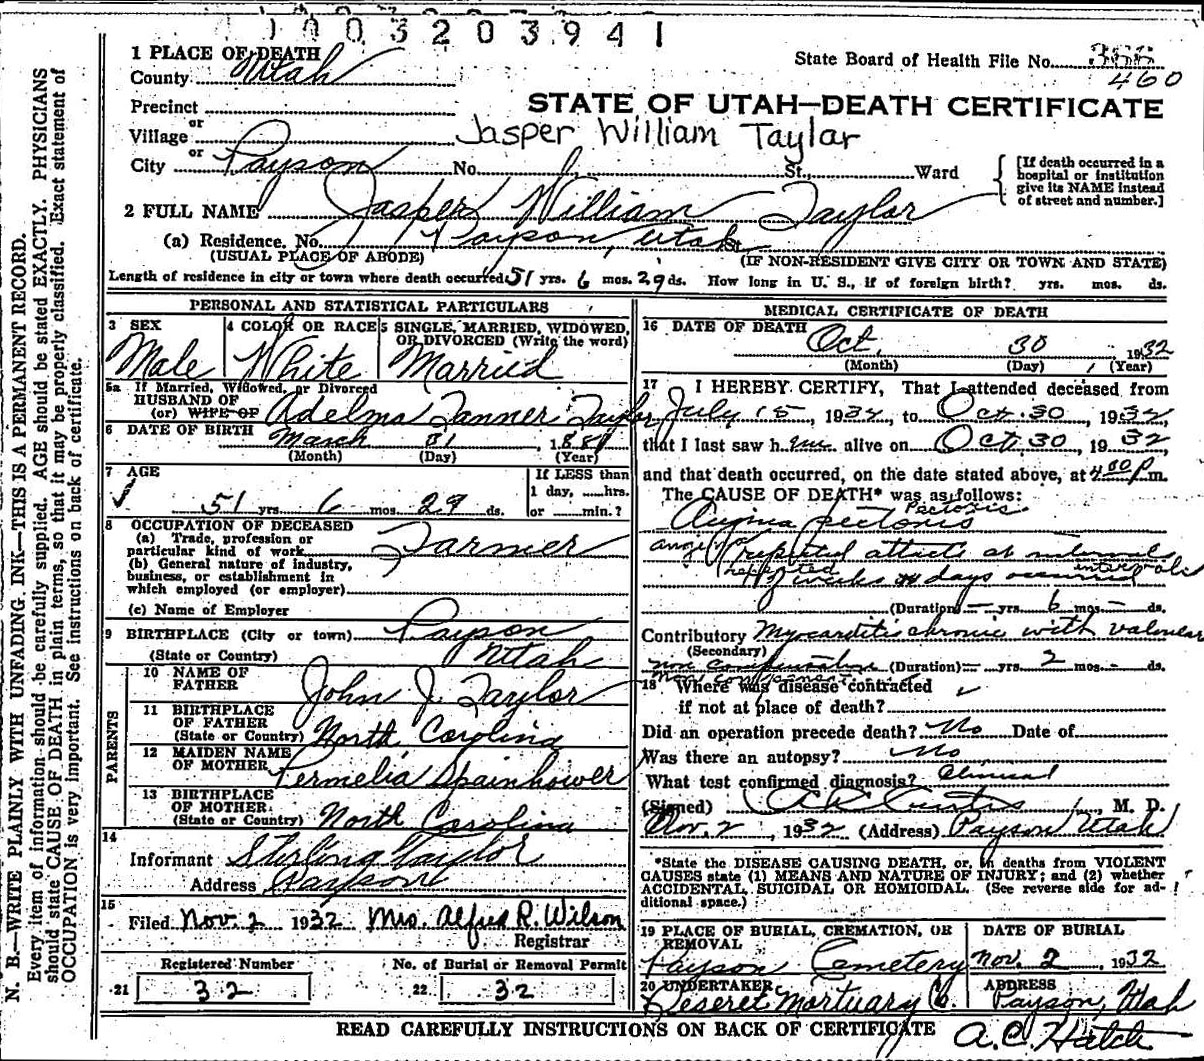 1003203941
1 PLACE OF DEATH
County Utah
State Board of Health File No. 366
460
Precinct
STATE OF UTAH—DEATH CERTIFICATE
or
Village
Jasper William Taylar
or
City Payson No. St., Ward
[If death occurred in a
hospital or institution
give its NAME instead
of street and number.]
2 FULL NAME Jasper William Taylor
(a) Residence. No. Payson, Utah St.
(USUAL PLACE OF ABODE) (IF NON-RESIDENT GIVE CITY OR TOWN AND STATE)
Length of residence in city or town where death occurred 51 yrs. 6 mos. 29 ds. How long in U. S., if of foreign birth? yrs. mos. ds.
PERSONAL AND STATISTICAL PARTICULARS
3 SEX
Male
4 COLOR OR RACE
White
5 SINGLE, MARRIED, WIDOWED,
OR DIVORCED (Write the word)
Married
5a If Married, Widowed, or Divorced
HUSBAND OF
(or) WIFE OF Adelma Tanner Taylor
6 DATE OF BIRTH March 31 1881
(Month) (Day) (Year)
7 AGE
51 yrs. 6 mos. 29 ds.
If LESS than
1 day, hrs.
or min.?
8 OCCUPATION OF DECEASED
(a) Trade, profession or
particular kind of work Farmer
(b) General nature of industry,
business, or establishment in
which employed (or employer)
(c) Name of Employer
9 BIRTHPLACE (City or town) Payson
(State or Country) Utah
PARENTS
10 NAME OF
FATHER John J. Taylor
11 BIRTHPLACE
OF FATHER
(State or Country) North Carolina
12 MAIDEN NAME
OF MOTHER Permelia Spainhower
13 BIRTHPLACE
OF MOTHER
(State or Country) North Carolina
14
Informant Stirling Taylor
Address Payson
15
Filed Nov. 2 1932 Mrs. Alfred R. Wilson
Registrar
Registered Number
21 32
No. of Burial or Removal Permit
22 32
MEDICAL CERTIFICATE OF DEATH
16 DATE OF DEATH Oct. 30 1932
(Month) (Day) (Year)
17 I HEREBY CERTIFY, That I attended deceased from
July 15, 1932, to Oct. 30, 1932,
that I last saw him alive on Oct. 30, 1932
and that death occurred, on the date stated above, at 4:00 P m.
The CAUSE OF DEATH* was as follows:
Pectoris
Angina pectoris
repeated attacks at intervals
repeated intervals
weeks or days occurred
(Duration) — yrs. 6 mos. — ds.
Contributory Myocarditis chronic with
(Secondary)
non compensation (Duration) — yrs. 2 mos. - ds.
18 Where was disease contracted
if not at place of death?
Did an operation precede death? No Date of
Was there an autopsy? No
What test confirmed diagnosis? Clinical
(Signed) Curtis, M. D.
Nov. 2, 1932 (Address) Payson Utah
*State the DISEASE CAUSING DEATH, or, in deaths from VIOLENT
CAUSES state (1) MEANS AND NATURE OF INJURY; and (2) whether
ACCIDENTAL, SUICIDAL OR HOMICIDAL. (See reverse side for ad-
ditional space.)
19 PLACE OF BURIAL, CREMATION, OR
REMOVAL
Payson Cemetery
DATE OF BURIAL
Nov. 2, 1932
20 UNDERTAKER
Deseret Mortuary Co.
ADDRESS
Payson, Utah
READ CAREFULLY INSTRUCTIONS ON BACK OF CERTIFICATE A. C. Hatch
N. B.—WRITE PLAINLY WITH UNFADING INK—THIS IS A PERMANENT RECORD.
Every item of information should be carefully supplied. AGE should be stated EXACTLY. PHYSICIANS
should state CAUSE OF DEATH in plain terms, so that it may be properly classified. Exact statement of
OCCUPATION is very important. See instructions on back of certificate.